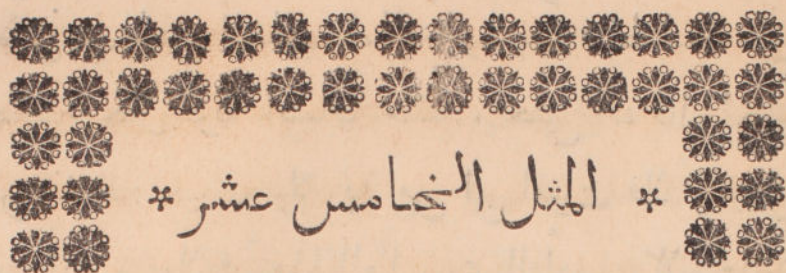 * المثل الخامس عشر *